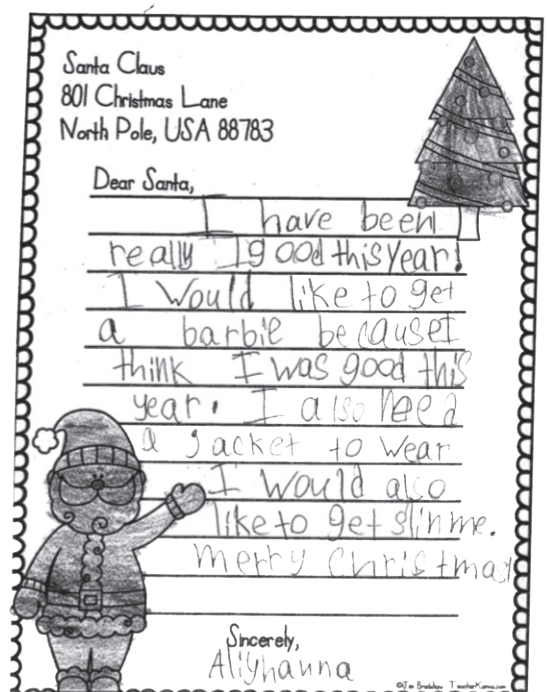 Santa Claus
801 Christmas Lane
North Pole, USA 88783
Dear Santa,
I have been
really I good this year!
I would like to get
a barbie because I
think I was good this
year. I also need
a jacket to wear
I would also
like to get slinme.
merry christmas!
Sincerely,
Aliyhanna
©Jen Bradshaw TeacherKarma.com